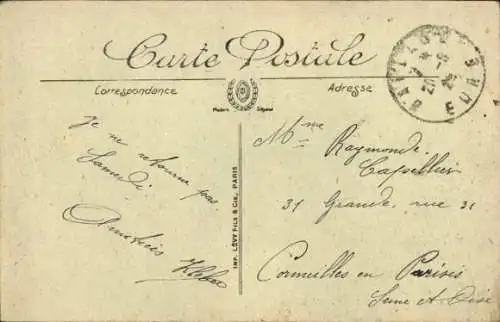 Carte Postale
Correspondance
Adresse
Je ne retourne pas
Samedi
Amitiés
Kléber
IMP. LÉVY FILS & Cie, PARIS
Mme Raymonde
Capellier
31 Grande rue 31
Cormeilles en Parisis
Seine et Oise
EURE